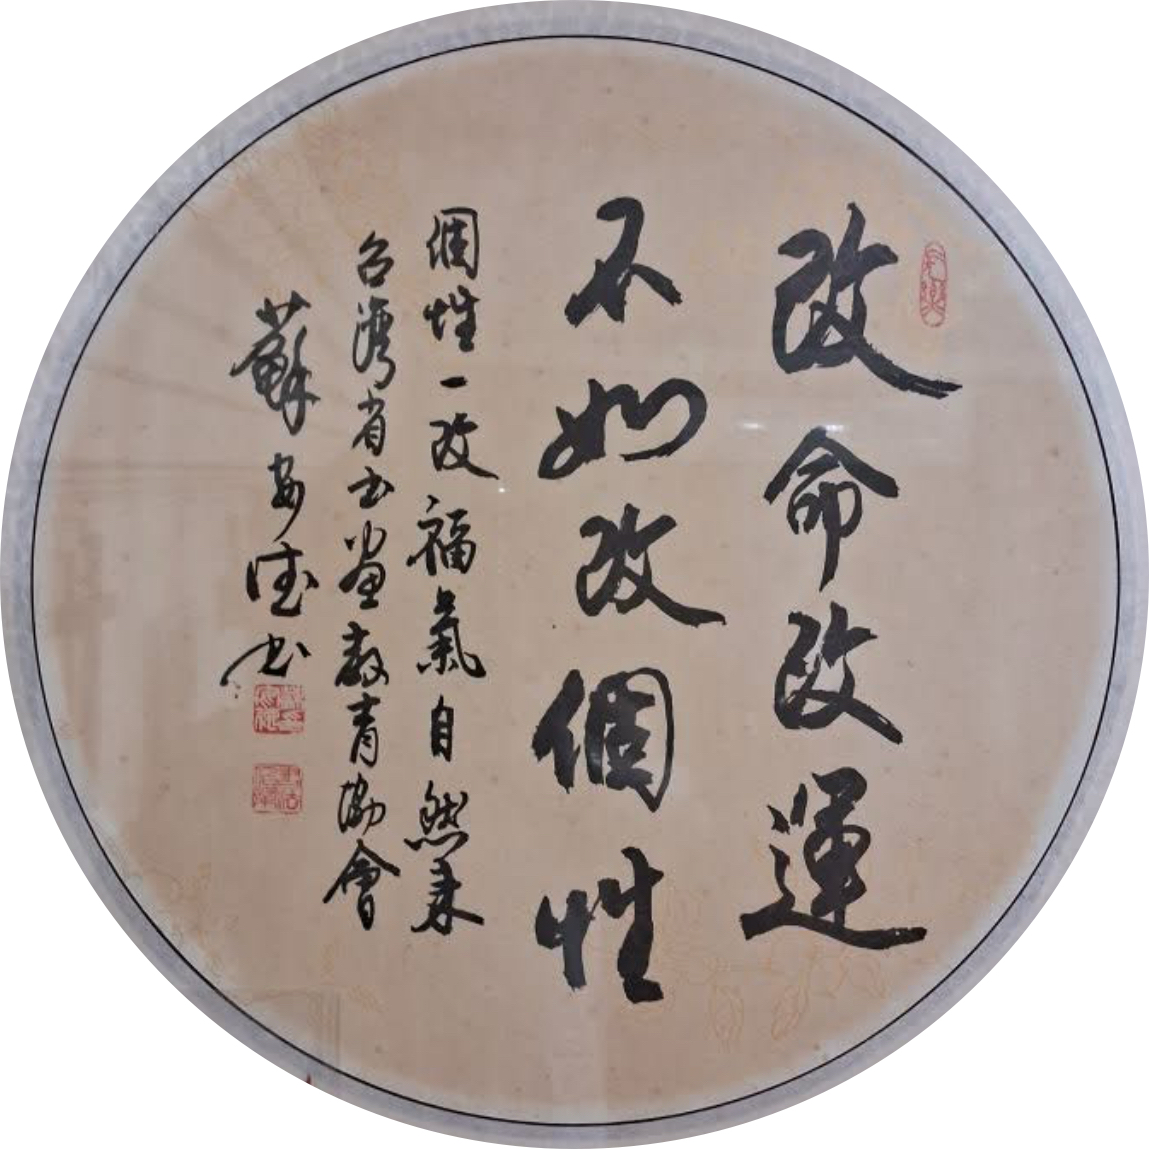 改命改運
不如改個性
個性一改福氣自然來
台灣省書畫教育協會
蘇安德書